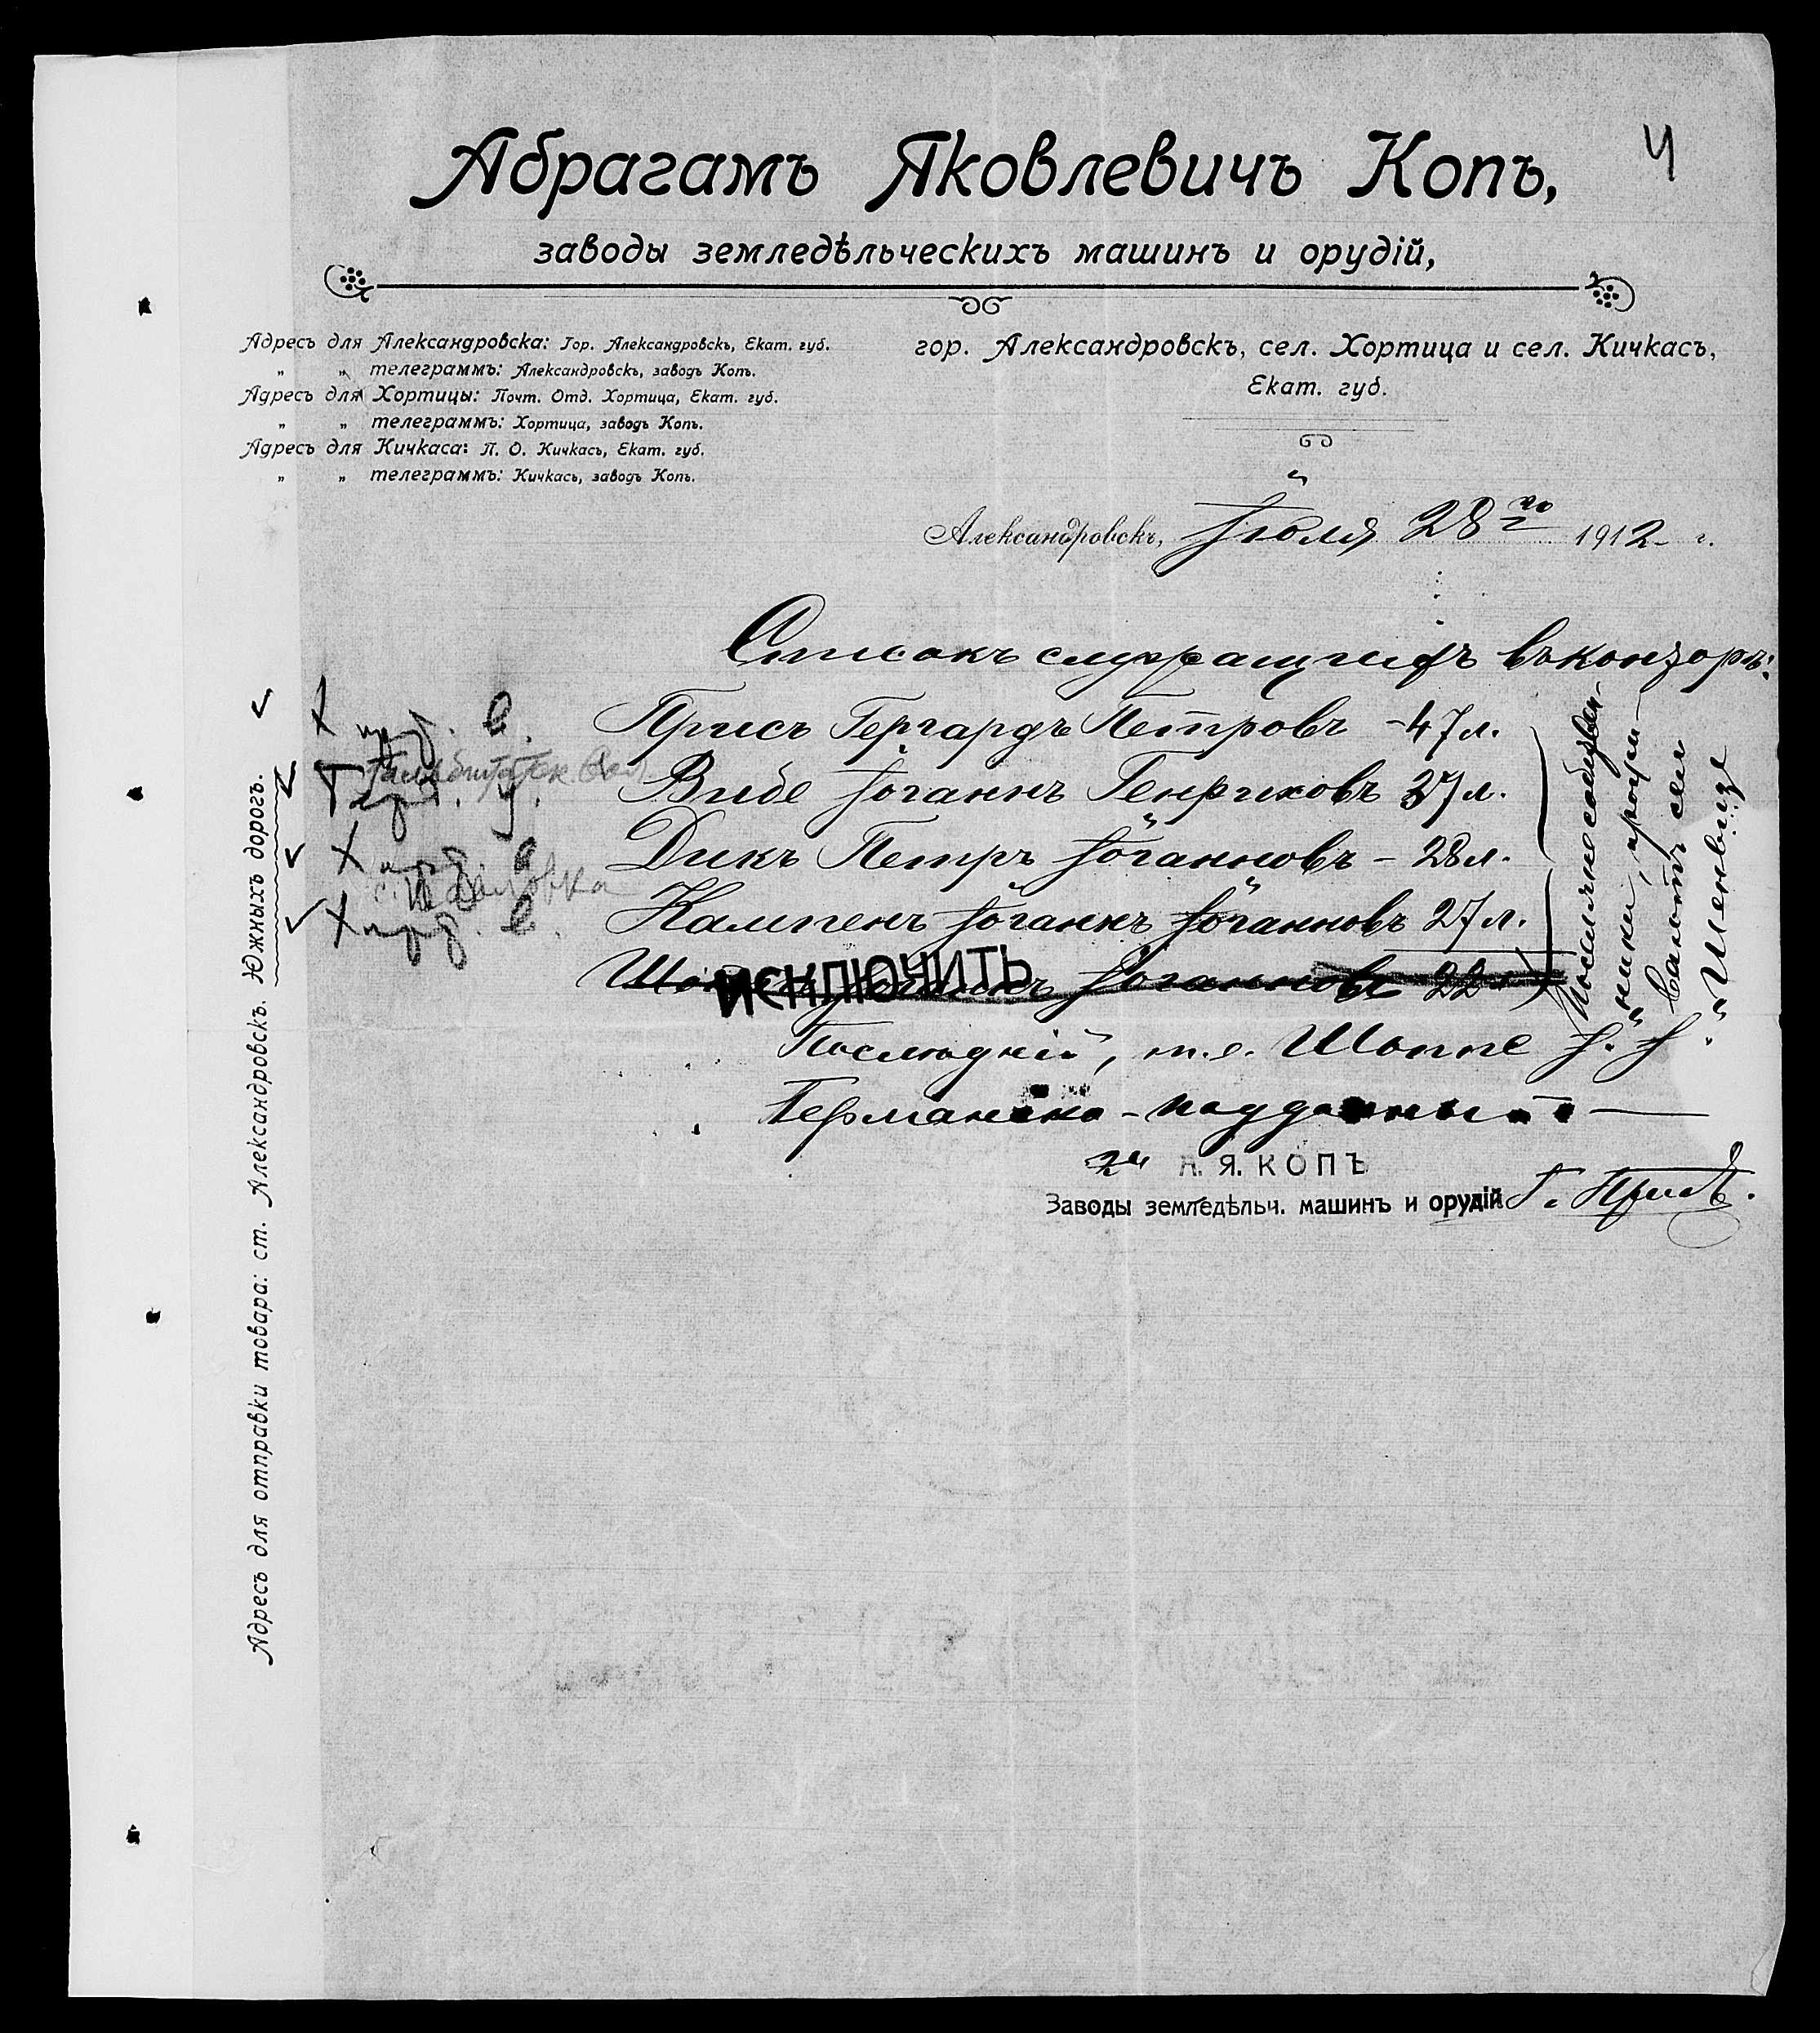 Абрагамъ Яковлевичъ Копъ,
4
заводы земледѣльческихъ машинъ и орудій,
Адресъ для Александровска: Гор. Александровскъ, Екат. губ.
„ „ телеграммъ: Александровскъ, заводъ Копъ.
Адресъ для Хортицы: Почт. Отд. Хортица, Екат. губ.
„ „ телеграммъ: Хортица, заводъ Копъ.
Адресъ для Кичкаса: П. О. Кичкасъ, Екат. губ.
„ „ телеграммъ: Кичкасъ, заводъ Копъ.
гор. Александровскъ, сел. Хортица и сел. Кичкасъ,
Екат. губ.
Александровскъ, Іюля 28го 1912 г.
Списокъ служащихъ въ конторѣ:
Присъ Гергардъ Петровъ - 47 л.
Вибе Іоганнъ Генриховъ 37 л.
Дикъ Петръ Іоганновъ - 28 л.
Кампенъ Іоганнъ Іоганновъ 27 л.
Шоппе Іоганнъ Іоганновъ 22 л.
ИСКЛЮЧИТЬ
Поселяне собствен-
ники, прожи-
ваютъ сел
Шенвизе
Послѣдній, т.е. Шоппе І. І.
Германско-подданный
А. Я. КОПЪ
Заводы земледѣльч. машинъ и орудій
Г. Присъ.
Адресъ для отправки товара: ст. Александровскъ. Южныхъ дорогъ.